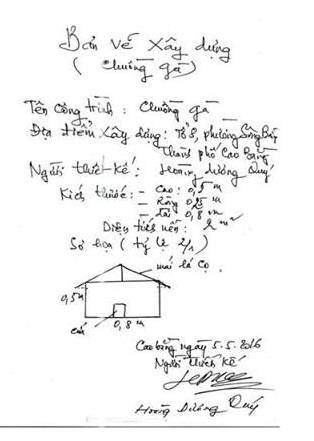 Bản vẽ xây dựng
( Chuồng gà )
Tên công trình : Chuồng gà
Địa điểm xây dựng: Tổ 8, phường Sông Bằng
Thành phố Cao Bằng.
Người thiết kế : Hoàng dương Quý
Kích thước: - Cao : 0,5 m
- Rộng 0,5 m
- dài 0,8 m
Diện tích nền : 2 m²
Sơ họa ( tỷ lệ 2/1 )
mái lá cọ.
0,5m
cửa
0,8 m
Cao bằng ngày 5.5.2016
Người thiết kế
Hoàng Dương Quý